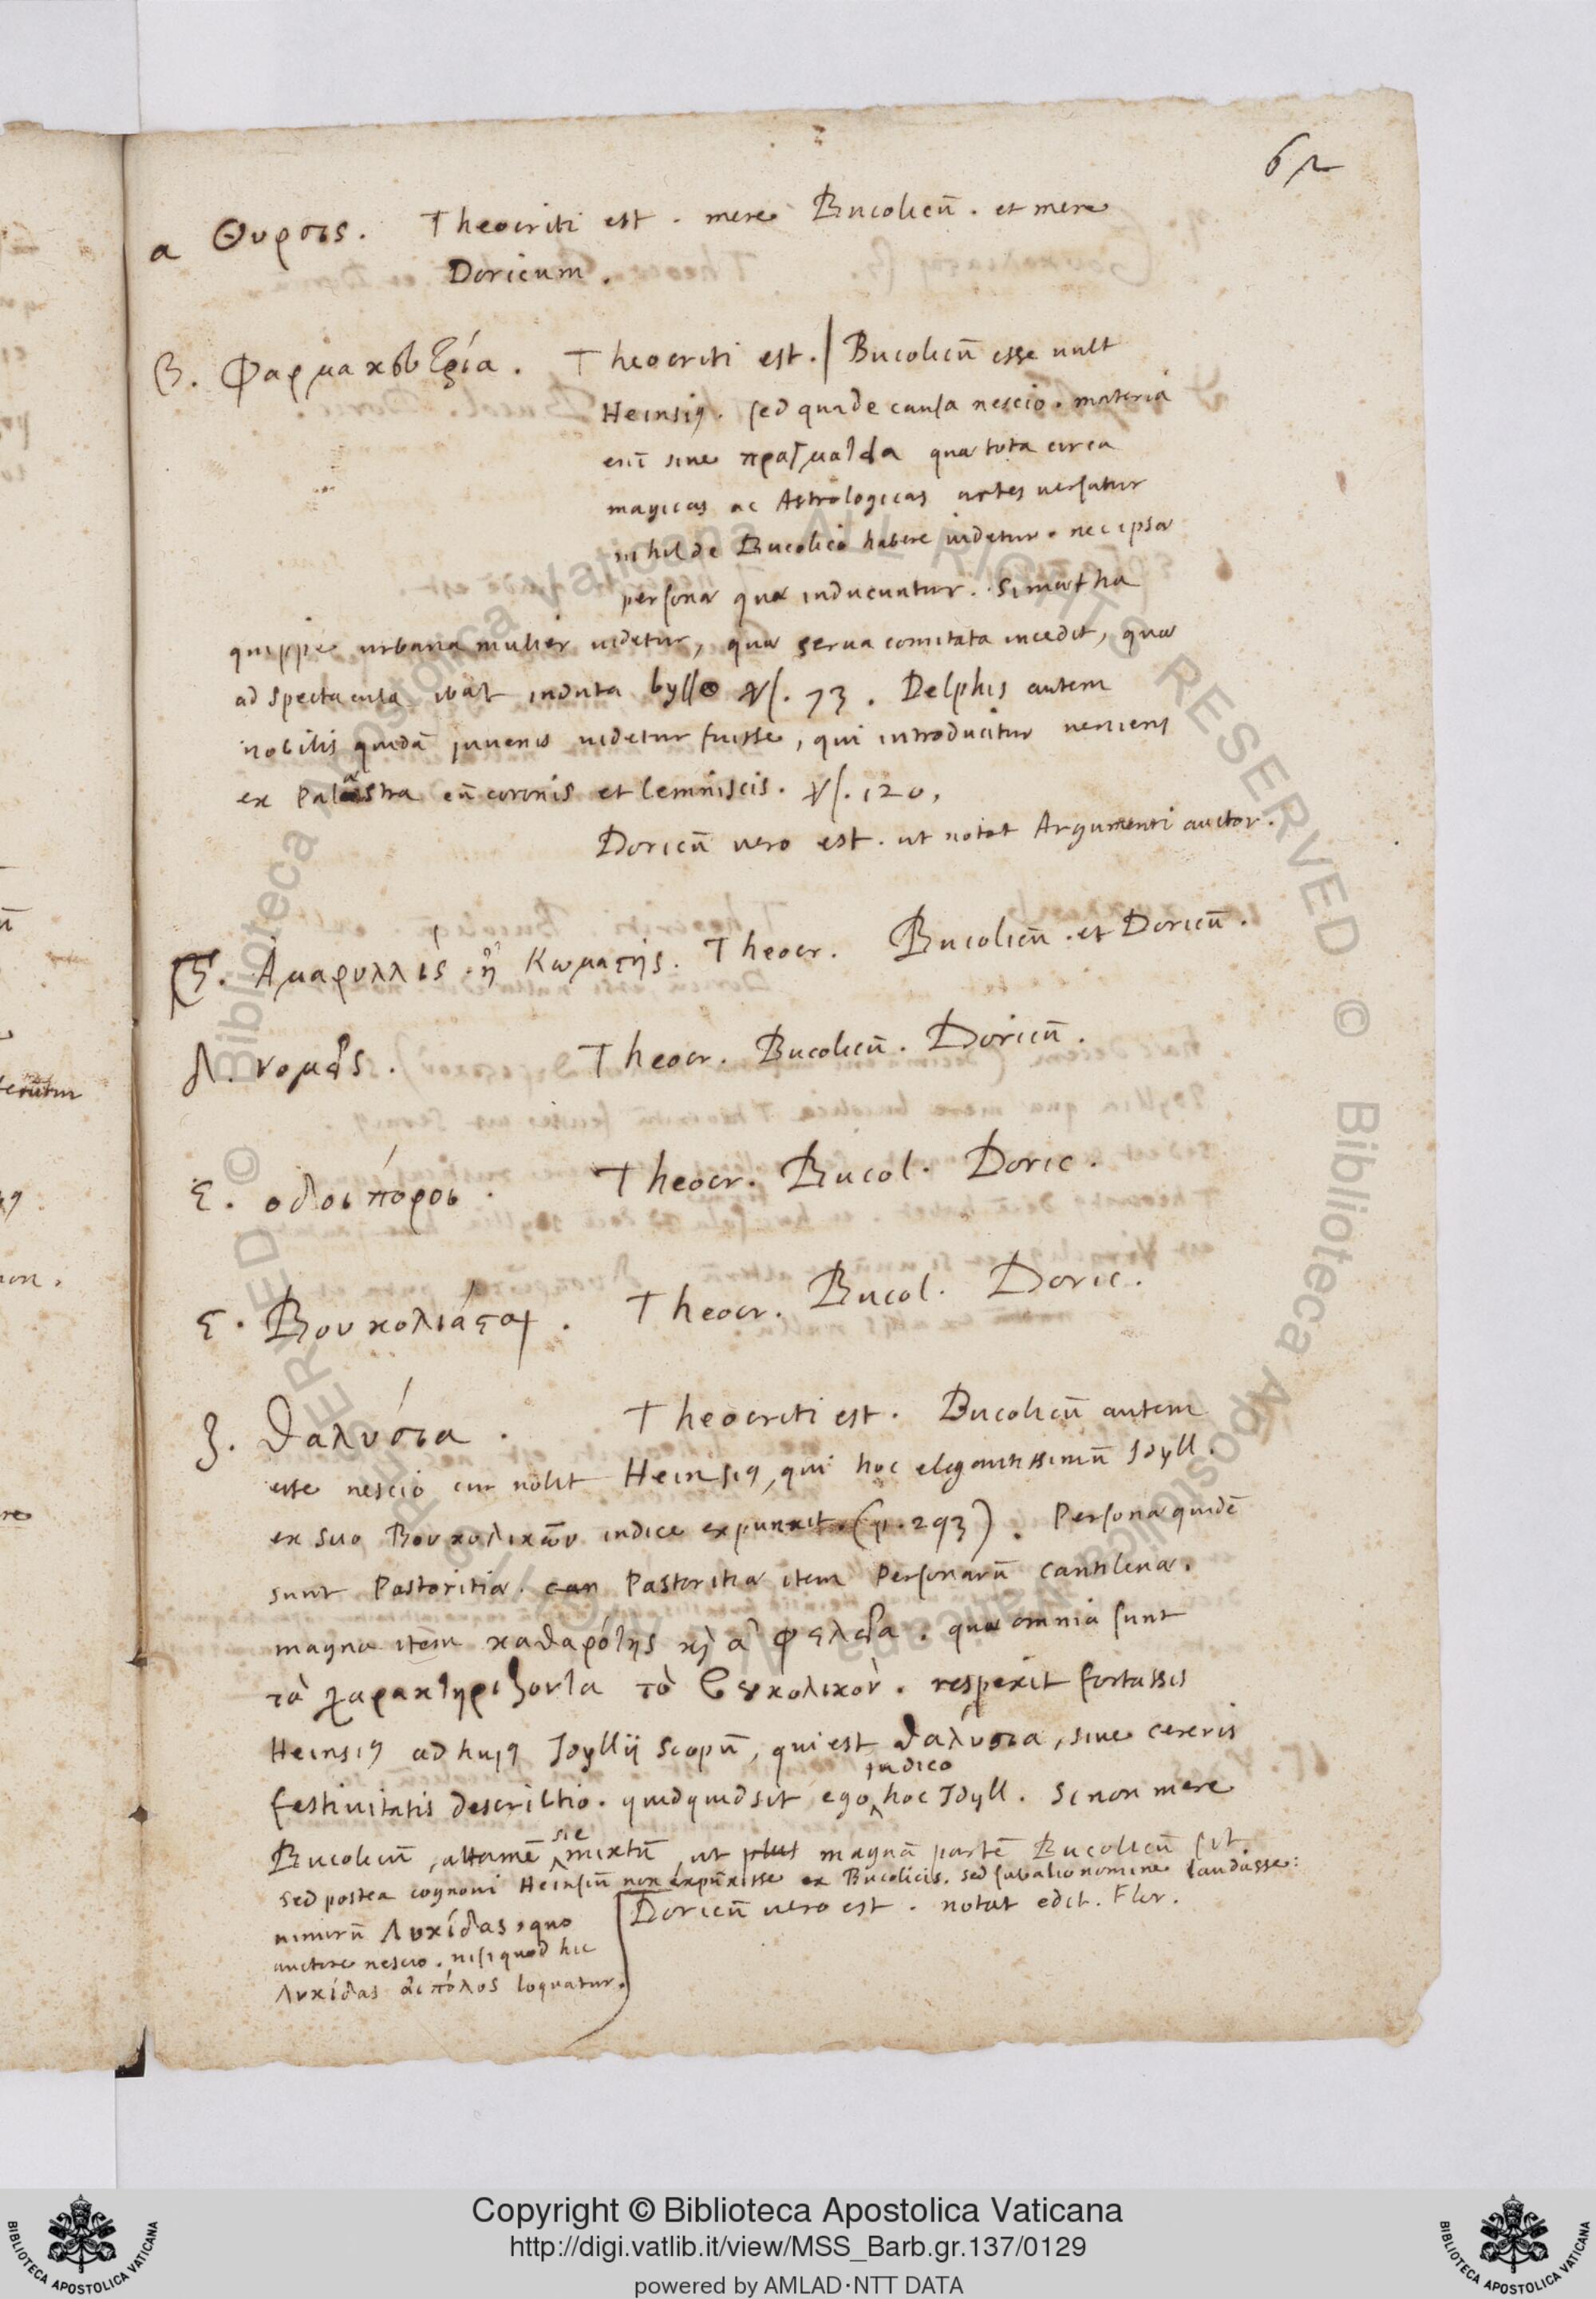 62
α Θυρσις. Theocriti est. mere Bucolicū. et mere
Doricum.
β. Φαρμακευτρία. Theocriti est. | Bucolicū esse uult
Heinsiꝰ. sed qua de causa nescio. materia
eni sine πραγματεία quae tota circa
magicas ac Astrologicas artes uersatur
nihil de Bucolico habere uidetur. nec ipsae
personae quae inducuntur. Simaetha
quippe urbana mulier uidetur, quae serua comitata incedit, quae
ad spectacula ibat induta bysso vs. 73. Delphis autem
nobilis quidā juuenis uidetur fuisse, qui introducitur ueniens
ex Palaestra cū coronis et lemniscis. vs. 120,
Doricū uero est. ut notat Argumenti auctor.
Ἀμαρυλλὶς ἢ Κωμαστής. Theocr. Bucolicū. et Doricū.
δ. νομεῖς. Theocr. Bucolicū. Doricū.
ε. οδοιπόροι. Theocr. Bucol. Doric.
ϛ. Βουκολιάσται. Theocr. Bucol. Doric.
ζ. θαλύσια. Theocriti est. Bucolicū autem
esse nescio cur nolit Heinsiꝰ, qui hoc elegantissimū Idyll.
ex suo Βουκολικῶν indice expunxit. (p. 293). Personae quidē
sunt Pastoritiae. Pastoritia item Personarū cantilena.
magna item καθαρότης κὶ ἀφέλεια. quae omnia sunt
τὰ χαρακτηρίζοντα τὸ βουκολικὸν. respexit fortassis
Heinsiꝰ ad hujꝰ Idyllij scopū, qui est θαλύσια, siue cereris
festiuitatis descriptio. quidquid sit, ego judico hoc Idyll. Si non mere
Bucolicū, attamē sic mixtū, ut plus magnā partē Bucolicū sit
sed postea cognoui Heinsiū non expūxisse ex Bucolicis. sed sub alio nomine laudasse:
nimirū Λυκίδας, quo
auctore nescio. nisi quod hic
Λυκίδας αἰπόλος loquatur.
Doricū uero est. notat edit. Flor.
Copyright © Biblioteca Apostolica Vaticana
http://digi.vatlib.it/view/MSS_Barb.gr.137/0129
powered by AMLAD·NTT DATA
BIBLIOTECA APOSTOLICA VATICANA
BIBLIOTECA APOSTOLICA VATICANA